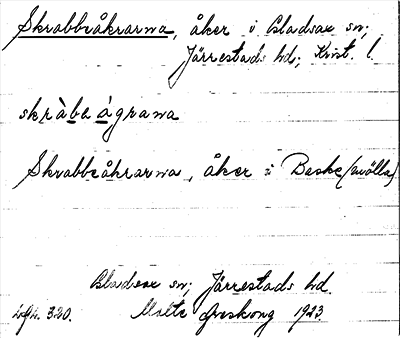 Skrabbeåkrarna, åker i Gladsax sn;
Järrestads hd; Krist. l.
skràbe ágrana
Skrabbeåkrarna, åker i Baske(mölla)
Gladsax sn; Järrestads hd.
Malte Areskoug 1923